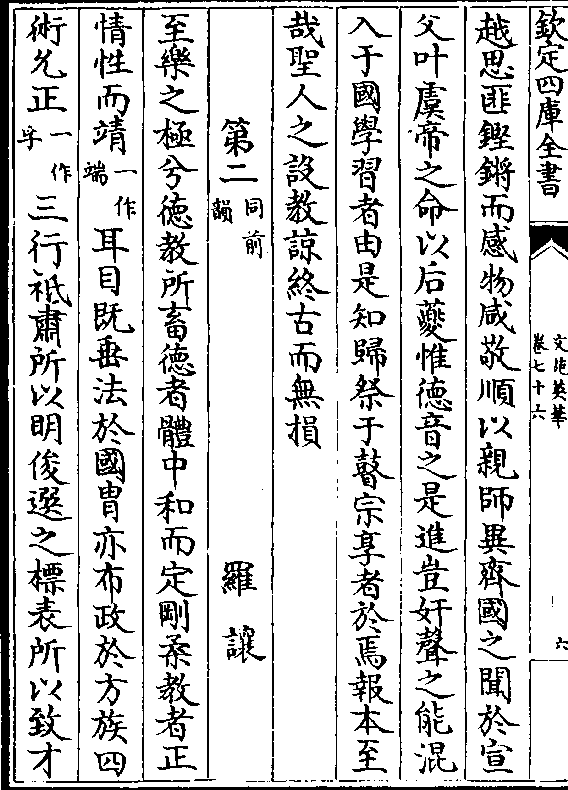 欽定四庫全書
文苑英華
卷七十六
六
越思匪鏗鏘而感物咸敬順以親師異齊國之聞於宣
父叶虞帝之命以后夔惟德音之是進豈奸聲之能混
入于國學習者由是知歸祭于瞽宗享者於焉報本至
哉聖人之設教諒終古而無損
第二 同前韻 羅讓
至樂之極兮德教所畜德者體中和而定剛柔教者正
情性而靖一作端耳目既垂法於國胄亦布政於方族四
術允正一作字三行祗肅所以明俊選之標表所以致才